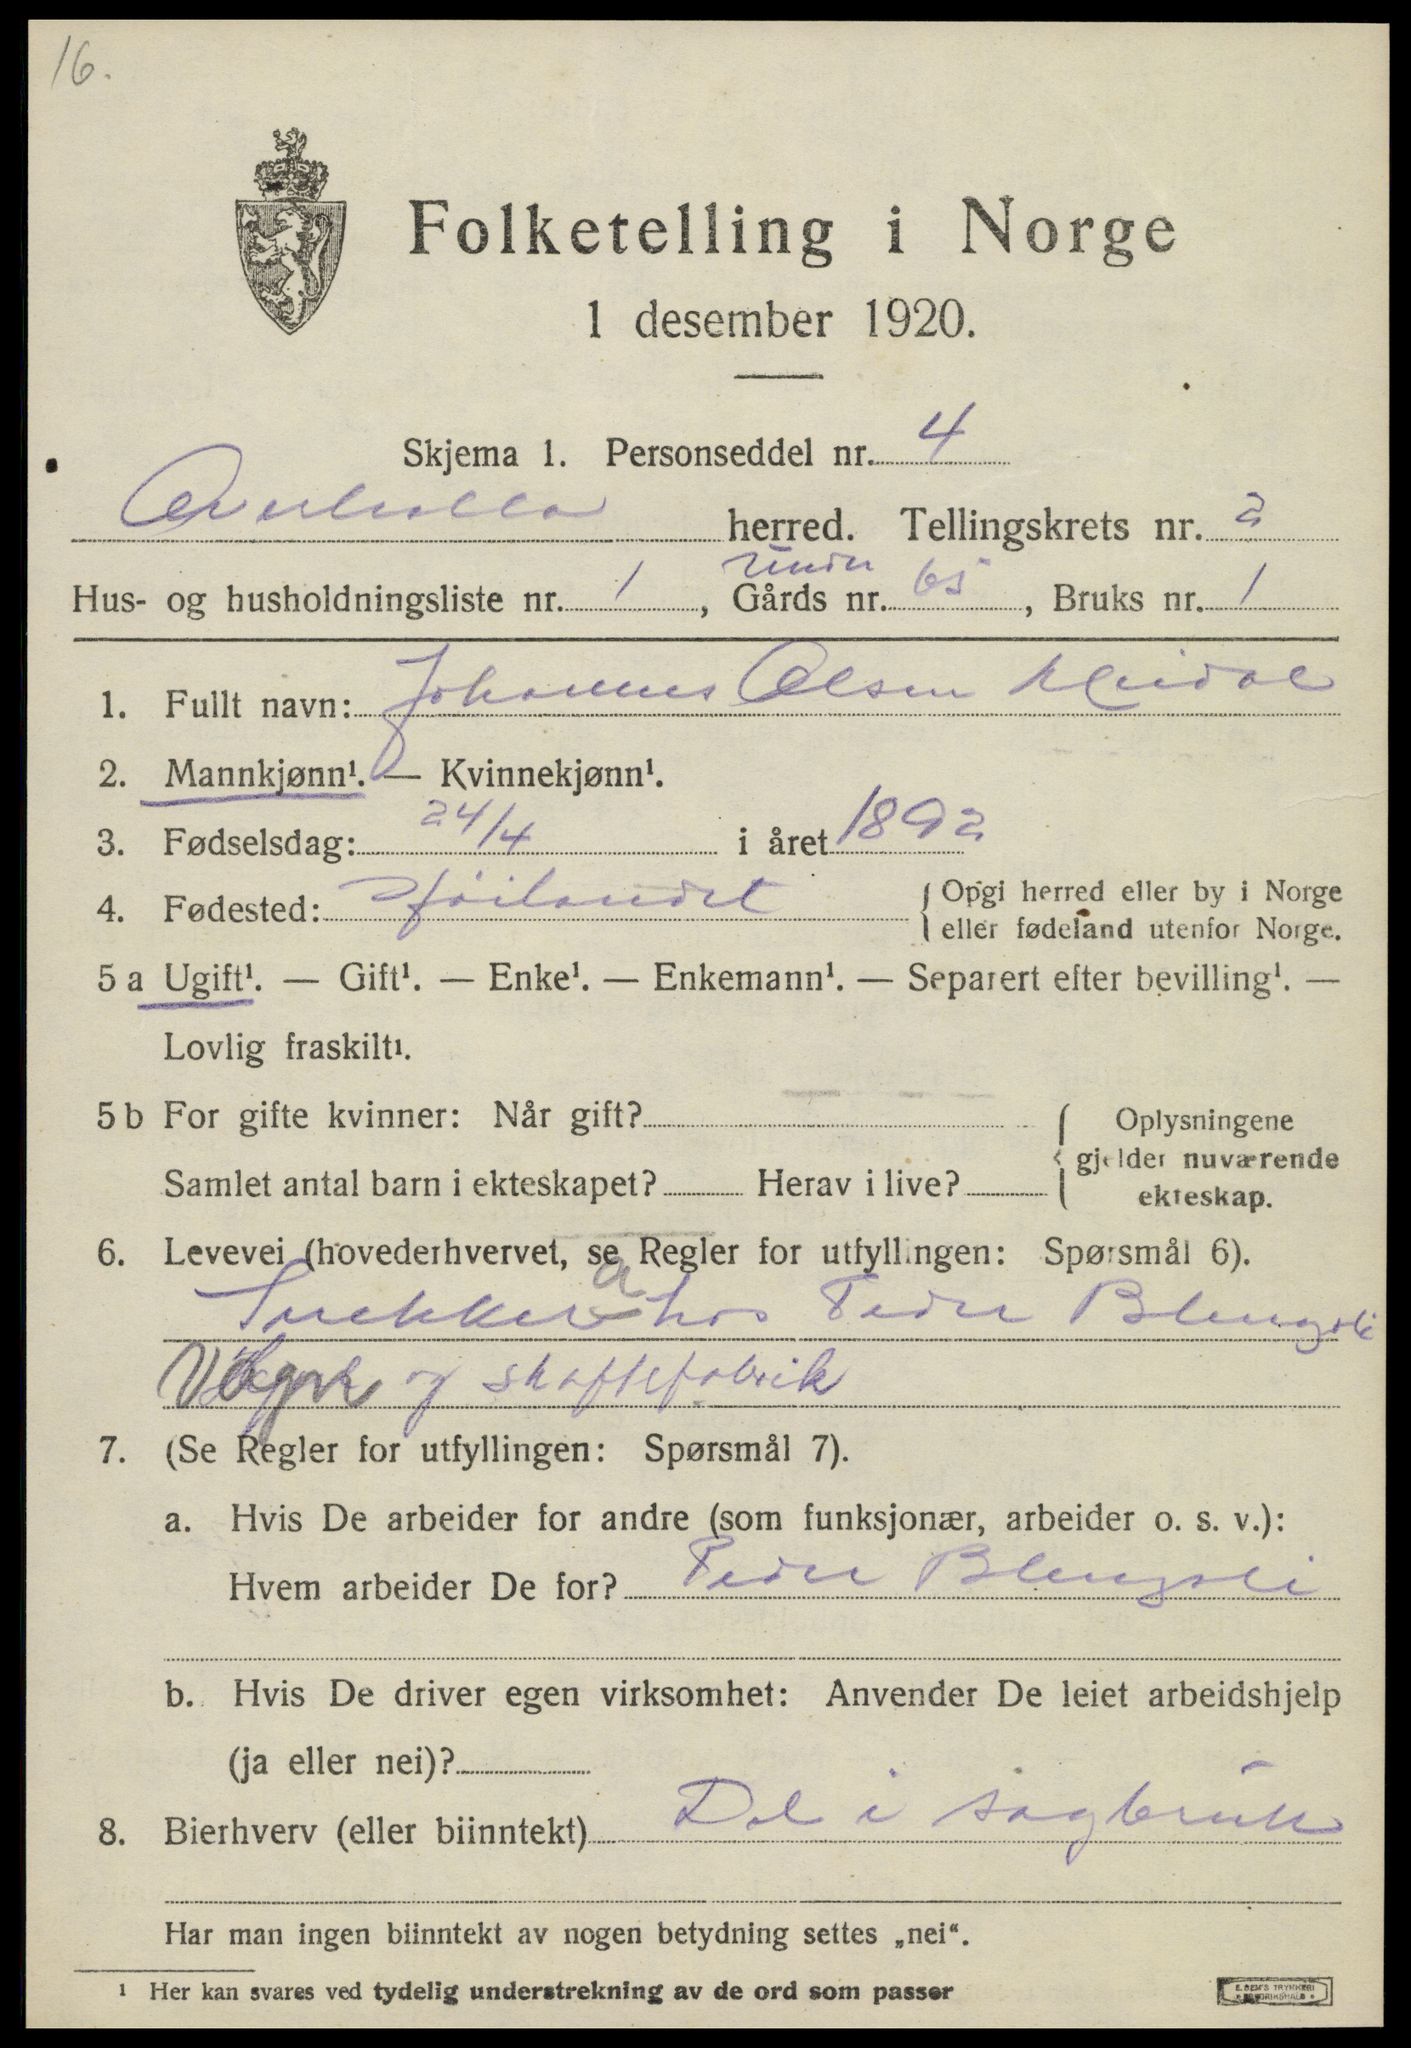 16.
Folketelling i Norge
1 desember 1920.
Skjema 1. Personseddel nr. 4
Overhalla herred. Tellingskrets nr. 2
under
Hus- og husholdningsliste nr. 1, Gårds nr. 65, Bruks nr. 1
1. Fullt navn: Johannes Olsen
2. Mannkjønn¹. — Kvinnekjønn¹.
3. Fødselsdag: 24/4 i året 1892
4. Fødested: Høilandet { Opgi herred eller by i Norge
eller fødeland utenfor Norge.
5 a Ugift¹. — Gift¹. — Enke¹. — Enkemann¹. — Separert efter bevilling¹. —
Lovlig fraskilt¹.
5 b For gifte kvinner: Når gift? { Oplysningene
gjelder nuværende
ekteskap.
Samlet antal barn i ekteskapet? Herav i live?
6. Levevei (hovederhvervet, se Regler for utfyllingen: Spørsmål 6).
a
Snekker hos Peder Blengsli
og skaftefabrik
7. (Se Regler for utfyllingen: Spørsmål 7).
a. Hvis De arbeider for andre (som funksjonær, arbeider o. s. v.):
Hvem arbeider De for? Peder Blengsli
b. Hvis De driver egen virksomhet: Anvender De leiet arbeidshjelp
(ja eller nei)?
8. Bierhverv (eller biinntekt) Del i sagbruk
Har man ingen biinntekt av nogen betydning settes „nei“.
¹ Her kan svares ved tydelig understrekning av de ord som passer